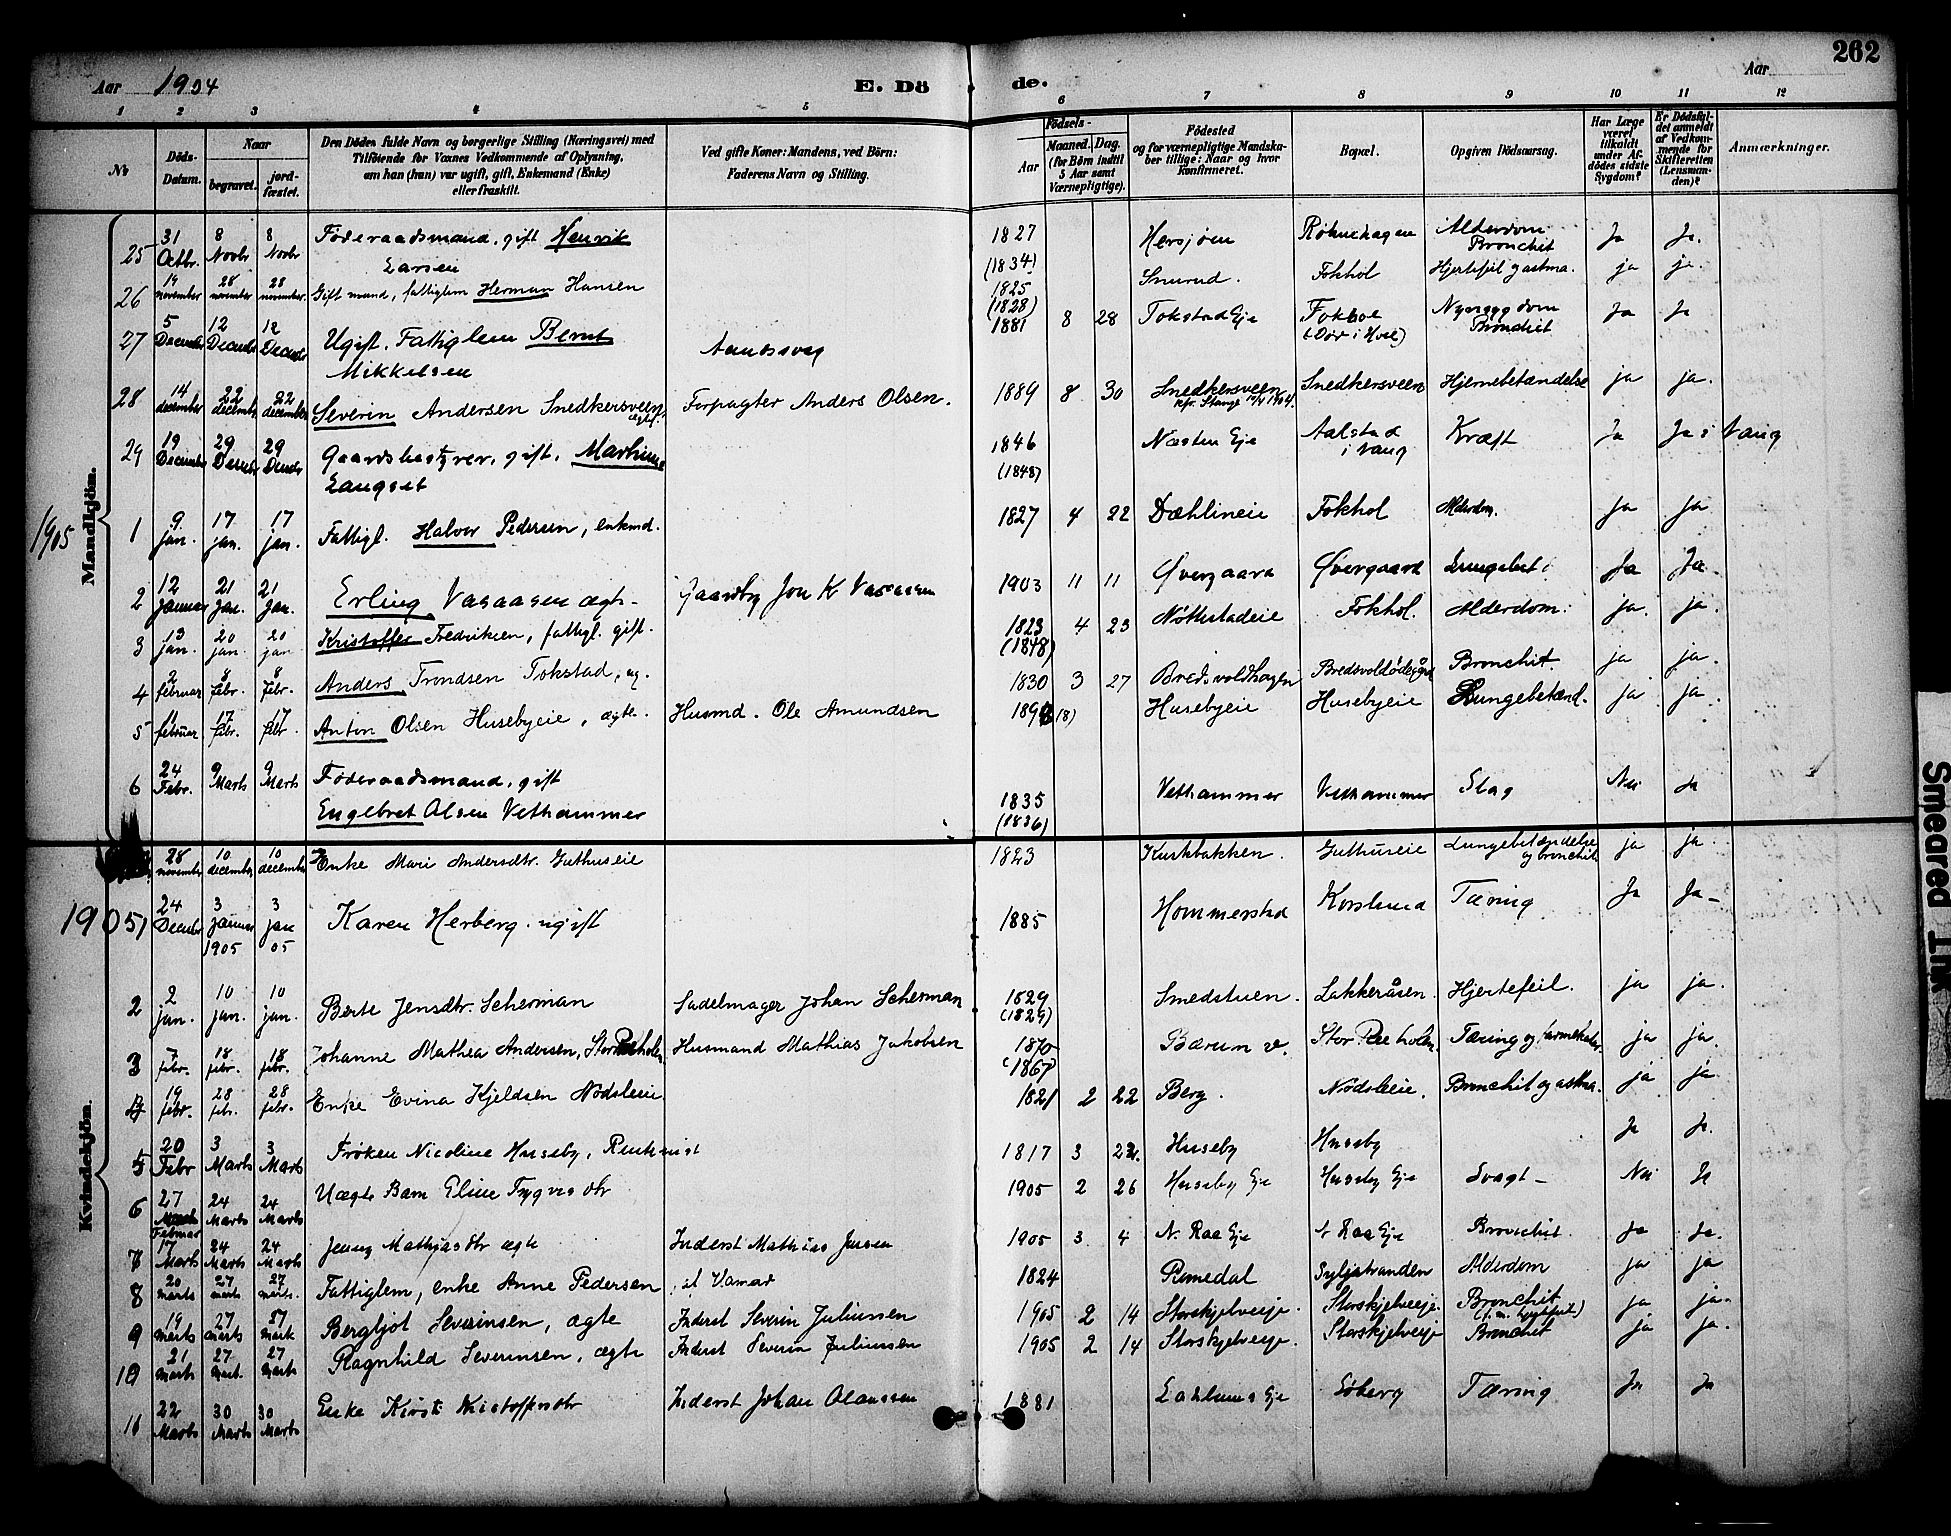 262
Aar 1904
E. Dö de.
Aar
1 2 3 4 5 6 7 8 9 10 11 12
№
Döds-Datum.
Naar
begravet.
jordfæstet.
Den Dödes fulde Navn og borgerlige Stilling (Næringsvei) med
Tilföiende for Voxnes Vedkommende af Oplysning,
om han (hun) var ugift, gift, Enkemand (Enke)
eller fraskilt.
Ved gifte Koner: Mandens, ved Börn:
Faderens Navn og Stilling.
Födsels-
Aar
Maaned. Dag.
(for Börn indtil
5 Aar samt
Værnepligtige).
Födested
og for værnepligtige Mandska-
ber tillige: Naar og hvor
konfirmeret.
Bopæl.
Opgiven Dödsaarsag.
Har Læge
været
tilkaldt
under Af-
dödes sidste
Sygdom?
Er Dödsfal-
det anmeldt
af Vedkom-
mende for
Skifteretten
(Lensman-
den)?
Anmærkninger.
Mandkjön.
25 31 Octbr. 8 Novbr 8 Novbr Föderaadsmand, gift Henrik Larsen 1827 (1834) Hersjøen Røhnehagen Alderdom Bronchit Ja Ja.
26 14 november 28 november 28 november Gift mand, fattiglem Herman Hansen 1825 (1828) Smerud. Fokhol Hjertefeil og astma. ja ja.
27 5 December 12 December 12 December Ugift. Fattiglem Bernt Mikkelsen 1881 8 28 Tokstad Eje Fokhol Bronchit Ja Ja
28 14 december 22 december 22 december Severin Andersen Snedkersveen, ægtef. Forpagter Anders Olsen. 1889 8 30 Snedkersveen Snedkersveen Hjernebetændelse ja ja.
29 19 December 29 December 29 December Gaardsbestyrer, gift. Langset 1846 (1848) Næsten Eje Aalstad i Vang Kræft Ja Ja i Vang
1905
1 9 jan. 17 jan. 17 jan. Fattigl. Halvor Pedersen, enkmd. 1827 4 22 Dæhlineie Fokhol Alderdom. ja ja
2 12 januar 21 jan. 21 jan. Erling Vasaasen ægte. Gaardbr Jon K Vasaasen 1903 11 11 Øvergaard Øvergaard Lungebet. Ja Ja
3 13 jan. 20 jan. 20 jan Kristoffer Fredriksen, fattigl. gift. 1823 (1848) 4 23 Nøttestadeie Fokhol. Alderdom. ja. ja.
4 2 februar 8 febr. 8 febr. Anders Trondsen Tokstad, ug. 1830 3 27 Bredsvoldhagen Bronchit. ja ja.
5 11 februar 17 febr. 17 febr. Anton Olsen Husebyeie, ægte. Husmd. Ole Amundsen (8) Husebyeie Husebyeie Lungebetænd. ja ja.
6 24 Febr. 9 Marts 9 Marts Föderaadsmand, gift Engebret Olsen Vethammer 1835 (1836) Vethammer Vethammer Slag Nei Ja
Kvindekjön.
28 november 10 december 10 december Enke Mari Andersdtr. Guthuseie 1823 Kuskbakken. Guthuseie Lungebetændelse og bronchit ja ja.
1905
1 24 December 3 Januar 1905 3 Jan 05 Karen Herberg. ugift 1885 Hommerstad Korslund Tæring Ja Ja
2 2 jan. 10 jan. 10 jan. Berte Jensdtr. Scherman Sadelmager Johan Scherman 1829 (1829) Smedstuen. Lakkeråsen. Hjertefeil. ja ja.
3 7 febr. 18 febr. 18 febr. Johanne Mathea Andersen, Husmand Mathias Jakobsen 1870 (1867) Bærum Tæring og ja ja.
4 19 febr. 28 febr. 28 febr. Enke Evina Kjeldsen Nødsleie 1821 2 22 Berg. Nødsleie. Bronchit og astma. ja ja.
5 20 Febr 3 Marts 3 Marts Frøken Nicoline Huseby, Rentenist 1817 3 Huseby Huseby Ja Ja.
6 27 Februar 24 Marts 24 Marts Uægte Barn Eline Trygvesdtr 1905 2 26 Huseby Eje Huseby Eje Svagt Nei Ja
7 17 Marts 24 Marts 24 Marts Jenny Mathiasdtr ægte Inderst Mathias Jensen 1905 3 4 N. Raa Eje N Raa Eje Bronchit. Ja Ja.
8 20 marts 27 marts 27 marts. Fattiglem, enke Anne Pedersen 1824 Romedal Alderdom ja ja
9 19 marts 27 marts Bergljot Severinsen, ægte Inderst Severin Juliussen 1905 2 14 Storskjelveeje. Storskjelveeje. Bronchit ja ja.
10 21 marts 27 mart. 27 marts Ragnhild Severinsen, ægte Inderst Severin Juliussen 1905 2 14 Storskjelveeje Storskjelveeje Bronchit ja ja.
11 22 Marts 30 Marts 30 Marts Enke Kirsti Kristoffersdtr Inderst Johan Olaussen 1881 Søberg Tæring Ja Ja
Smeared Ink